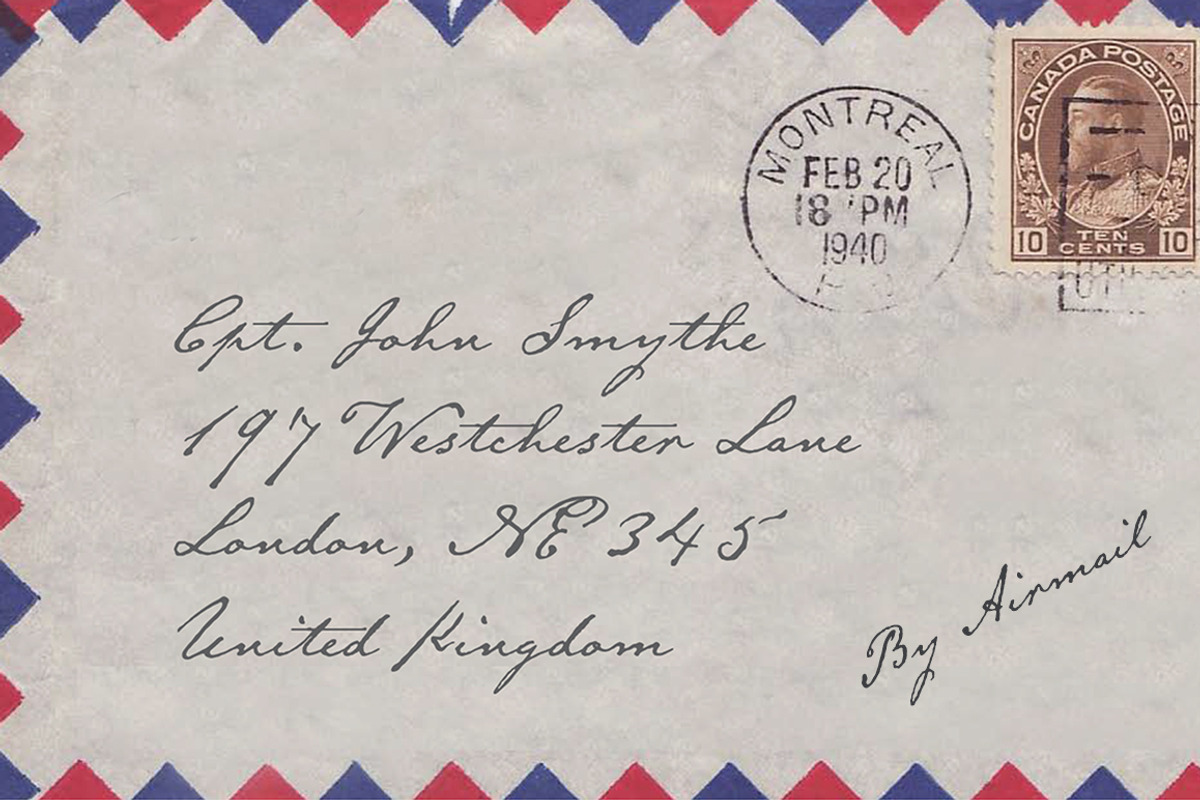 CANADA POSTAGE
MONTREAL
FEB 20
18 PM
1940
10 TEN CENTS 10
Cpt. John Smythe
197 Westchester Lane
London, NE 345
United Kingdom
By Airmail